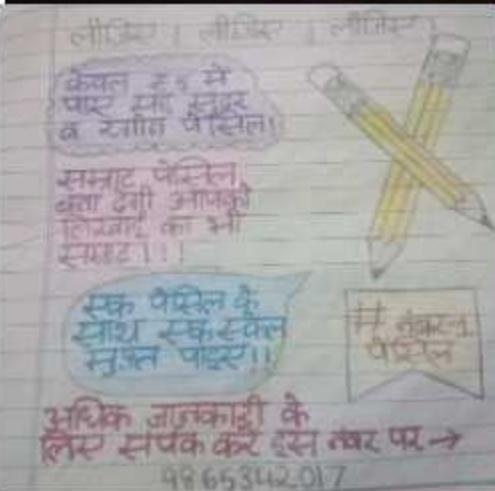 लीजिए । लीजिए । लीजिए ।
केवल ₹5 में
पाए एक सुंदर
व रंगीन पेंसिल।
सम्राट पेंसिल
बना देगी आपको
लिखाई का भी
सम्राट।।!
एक पेंसिल के
साथ एक स्केल
मुफ़्त पाइए!!
# नंबर-1
पेंसिल
अधिक जानकारी के
लिए संपर्क करें इस नंबर पर →
9865342017